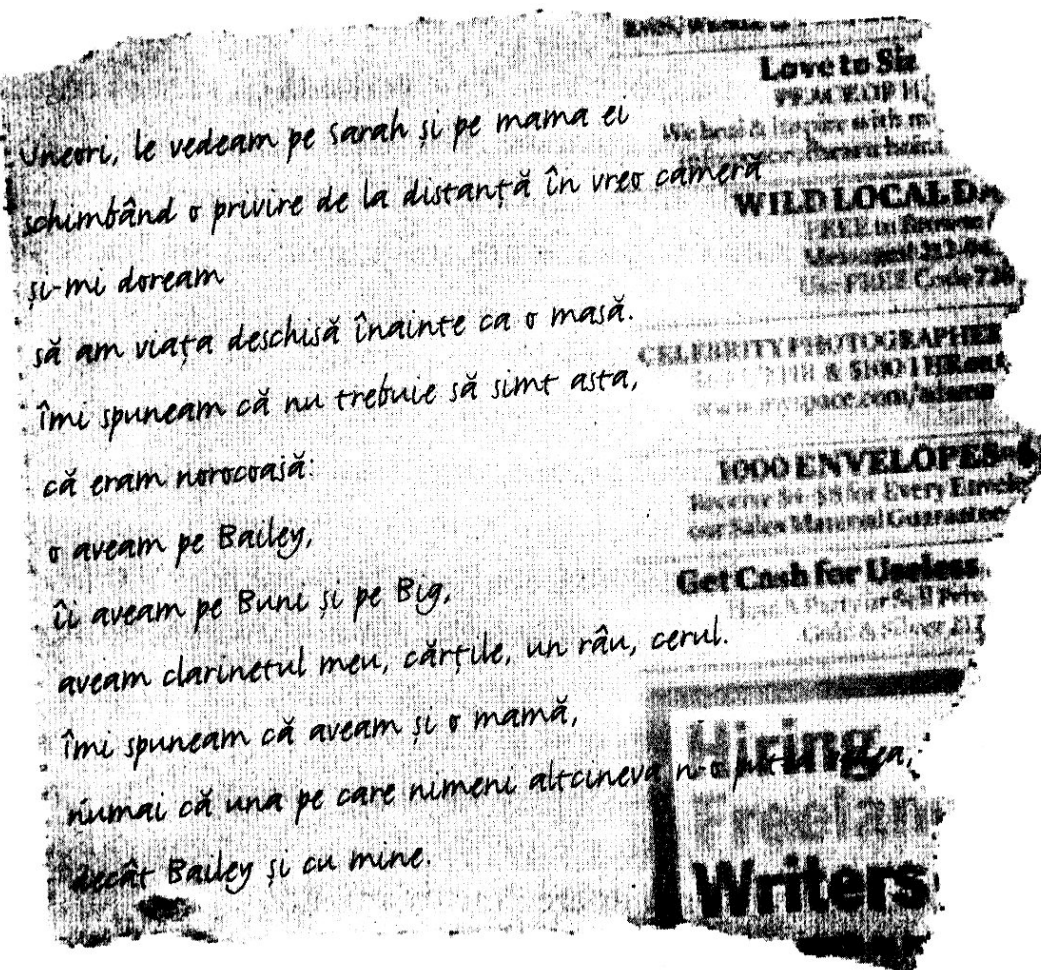 Uneori, le vedeam pe Sarah și pe mama ei
schimbând o privire de la distanță în vreo cameră
și-mi doream
să am viața deschisă înainte ca o masă.
Îmi spuneam că nu trebuie să simt asta,
că eram norocoasă:
o aveam pe Bailey,
îi aveam pe Buni și pe Big,
aveam clarinetul meu, cărțile, un râu, cerul.
Îmi spuneam că aveam și o mamă,
numai că una pe care nimeni altcineva n-o putea vedea,
decât Bailey și cu mine.
Love to Sin
PEACE OF
WILD LOCAL DA
FREE to Browse
Use FREE Code
CELEBRITY PHOTOGRAPHER
1000 ENVELOPES
Receive $6-$8 for Every Envelope
our Sales Material Guarantee
Get Cash for Useless
Hiring
Freelan
Writers